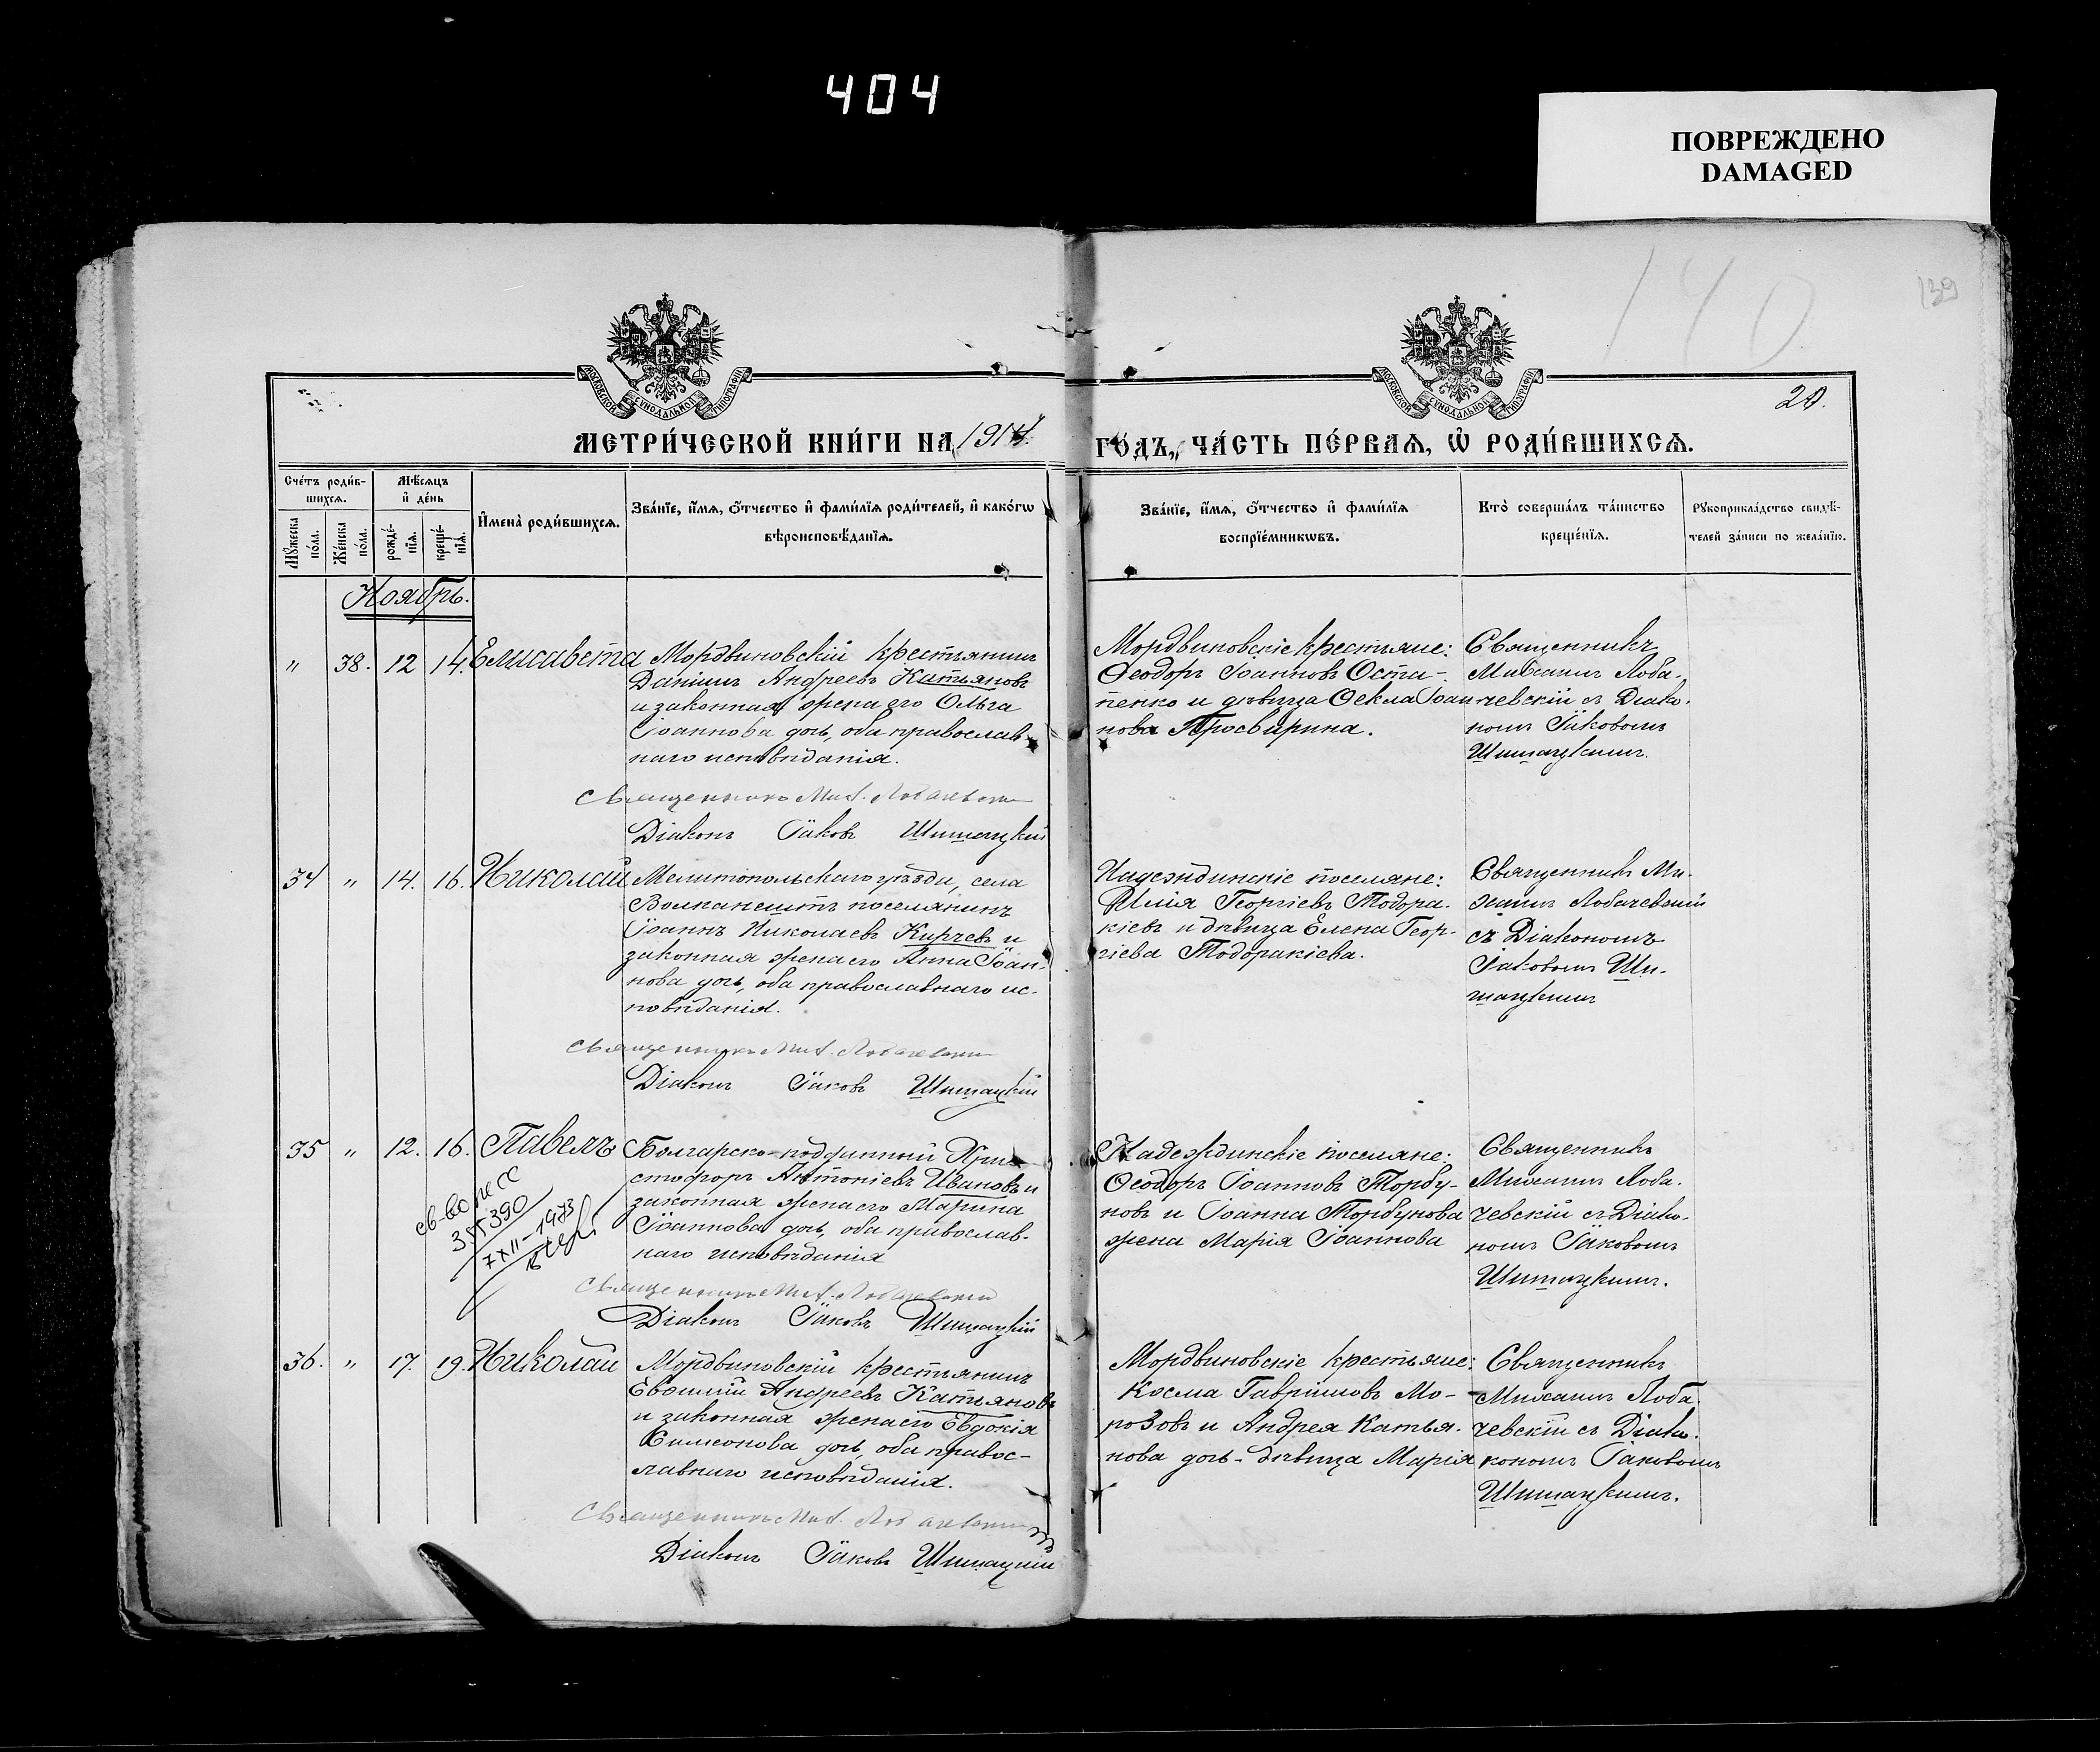 404
ПОВРЕЖДЕНО
DAMAGED
139
140
20.
МОСКОВСКОЙ СѴНОДАЛЬНОЙ ТИПОГРАФІИ
МОСКОВСКОЙ СѴНОДАЛЬНОЙ ТИПОГРАФІИ
МЕТРИ́ЧЕСКОЙ КНИ́ГИ НА 1914
ГО́ДЪ, ЧА́СТЬ ПЕ́РВАѦ, Ѡ҆ РОДИ́ВШИХСѦ.
Сче́тъ роди́в-
шихсѧ.
Мꙋ́жеска
по́ла.
Же́нска
по́ла.
Мѣ́сѧцъ
и҆ де́нь
рожде́-
нїѧ.
креще́-
нїѧ.
И҆мена̀ роди́вшихсѧ.
Зва́нїе, и҆́мѧ, ѻ҆́тчество и҆ фами́лїѧ роди́телей, и҆ како́гѡ
вѣроисповѣ́данїѧ.
Зва́нїе, и҆́мѧ, ѻ҆́тчество и҆ фами́лїѧ
воспрїе́мникѡвъ.
Кто̀ соверша́лъ та́инство
креще́нїѧ.
Рꙋкоприкла́дство свидѣ́-
телей за́писи по жела́нїю.
Ноябрь.
" 38. 12 14. Елисавета
Мордвиновскій крестьянинъ
Даніилъ Андреевъ Катьяновъ
и законная жена его Ольга
Іоаннова дочь, оба православ-
наго исповѣданія.
Священникъ Мих. Лобачевскій
Діаконъ Іаковъ Шишацкій
Мордвиновскіе крестьяне:
Ѳеодоръ Іоанновъ Оста-
пенко и дѣвица Ѳекла Іоан
нова Просвирина.
Священникъ
Михаилъ Лоба-
чевскій съ Діако-
номъ Іаковомъ
Шишацкимъ.
34 " 14. 16. Николай
Мелитопольскаго уѣзда, села
Волканештъ поселянинъ
Іоаннъ Николаевъ Кирчевъ и
законная жена его Анна Іоан-
нова дочь, оба православнаго ис-
повѣданія.
Священникъ Мих. Лобачевскій
Діаконъ Іаковъ Шишацкій
Надеждинскіе поселяне:
Илія Георгіевъ Тодора-
кіевъ и дѣвица Елена Геор-
гіева Тодоракіева.
Священникъ Ми-
хаилъ Лобачевскій
съ Діакономъ
Іаковомъ Ши-
шацкимъ
35 " 12. 16. Павелъ
св-во
390
7 XII - 1973
Болгарско-подданный Хри-
стофоръ Антоніевъ Ивановъ и
законная жена его Марина
Іоаннова дочь, оба православ-
наго исповѣданія
Священникъ Мих. Лобачевскій
Діаконъ Іаковъ Шишацкій
Надеждинскіе поселяне:
Ѳеодоръ Іоанновъ Торбу-
новъ и Іоанна Торбунова
жена Марія Іоаннова
Священникъ
Михаилъ Лоба-
чевскій съ Діако-
номъ Іаковомъ
Шишацкимъ.
36. " 17. 19. Николай
Мордвиновскій крестьянинъ
Евѳимій Андреевъ Катьяновъ
и законная жена его Евдокія
Симеонова дочь, оба правос-
лавнаго исповѣданія.
Священникъ Мих. Лобачевскій
Діаконъ Іаковъ Шишацкій
Мордвиновскіе крестьяне:
Косма Гавріиловъ Мо-
розовъ и Андрея Катья-
нова дочь - дѣвица Марія
Священникъ
Михаилъ Лоба-
чевскій съ Діако-
кономъ Іаковомъ
Шишацкимъ.